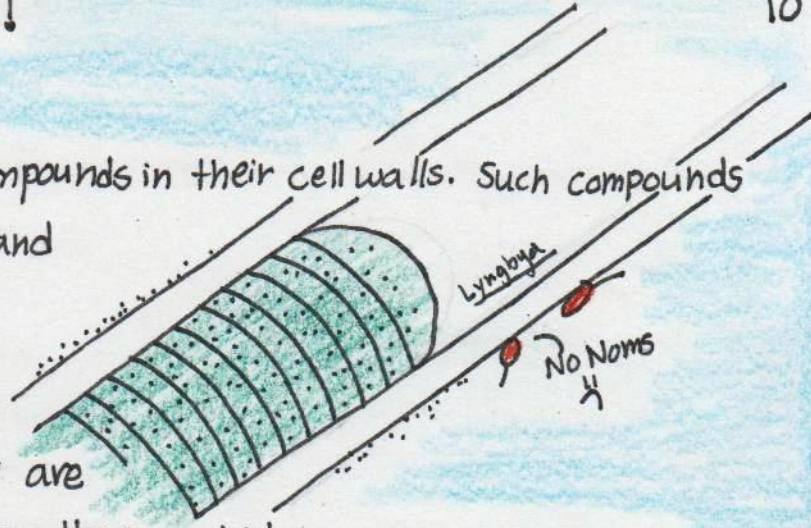 10
mpounds in their cell walls. Such compounds
and
Lyngbya
No Noms
are